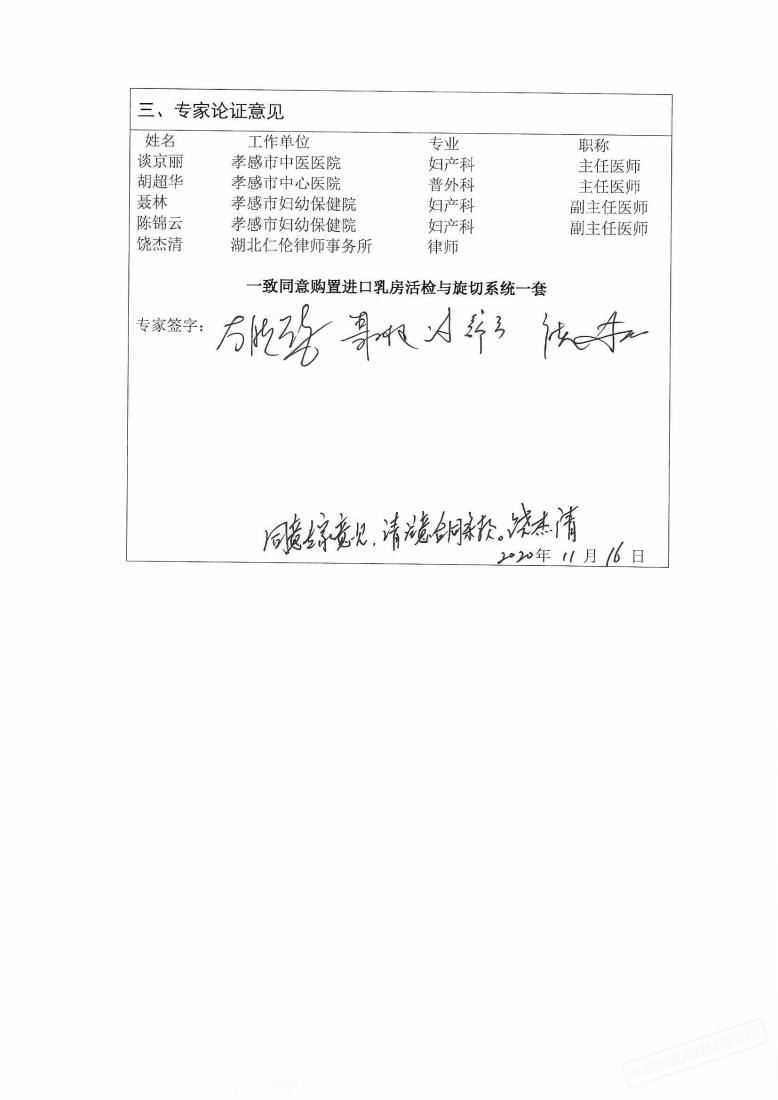 三、专家论证意见
姓名 工作单位 专业 职称
谈京丽 孝感市中医医院 妇产科 主任医师
胡超华 孝感市中心医院 普外科 主任医师
聂林 孝感市妇幼保健院 妇产科 副主任医师
陈锦云 孝感市妇幼保健院 妇产科 副主任医师
饶杰清 湖北仁伦律师事务所 律师
一致同意购置进口乳房活检与旋切系统一套
专家签字:
同意专家意见,请注意合同条款。饶杰清
2020年 11 月 16 日